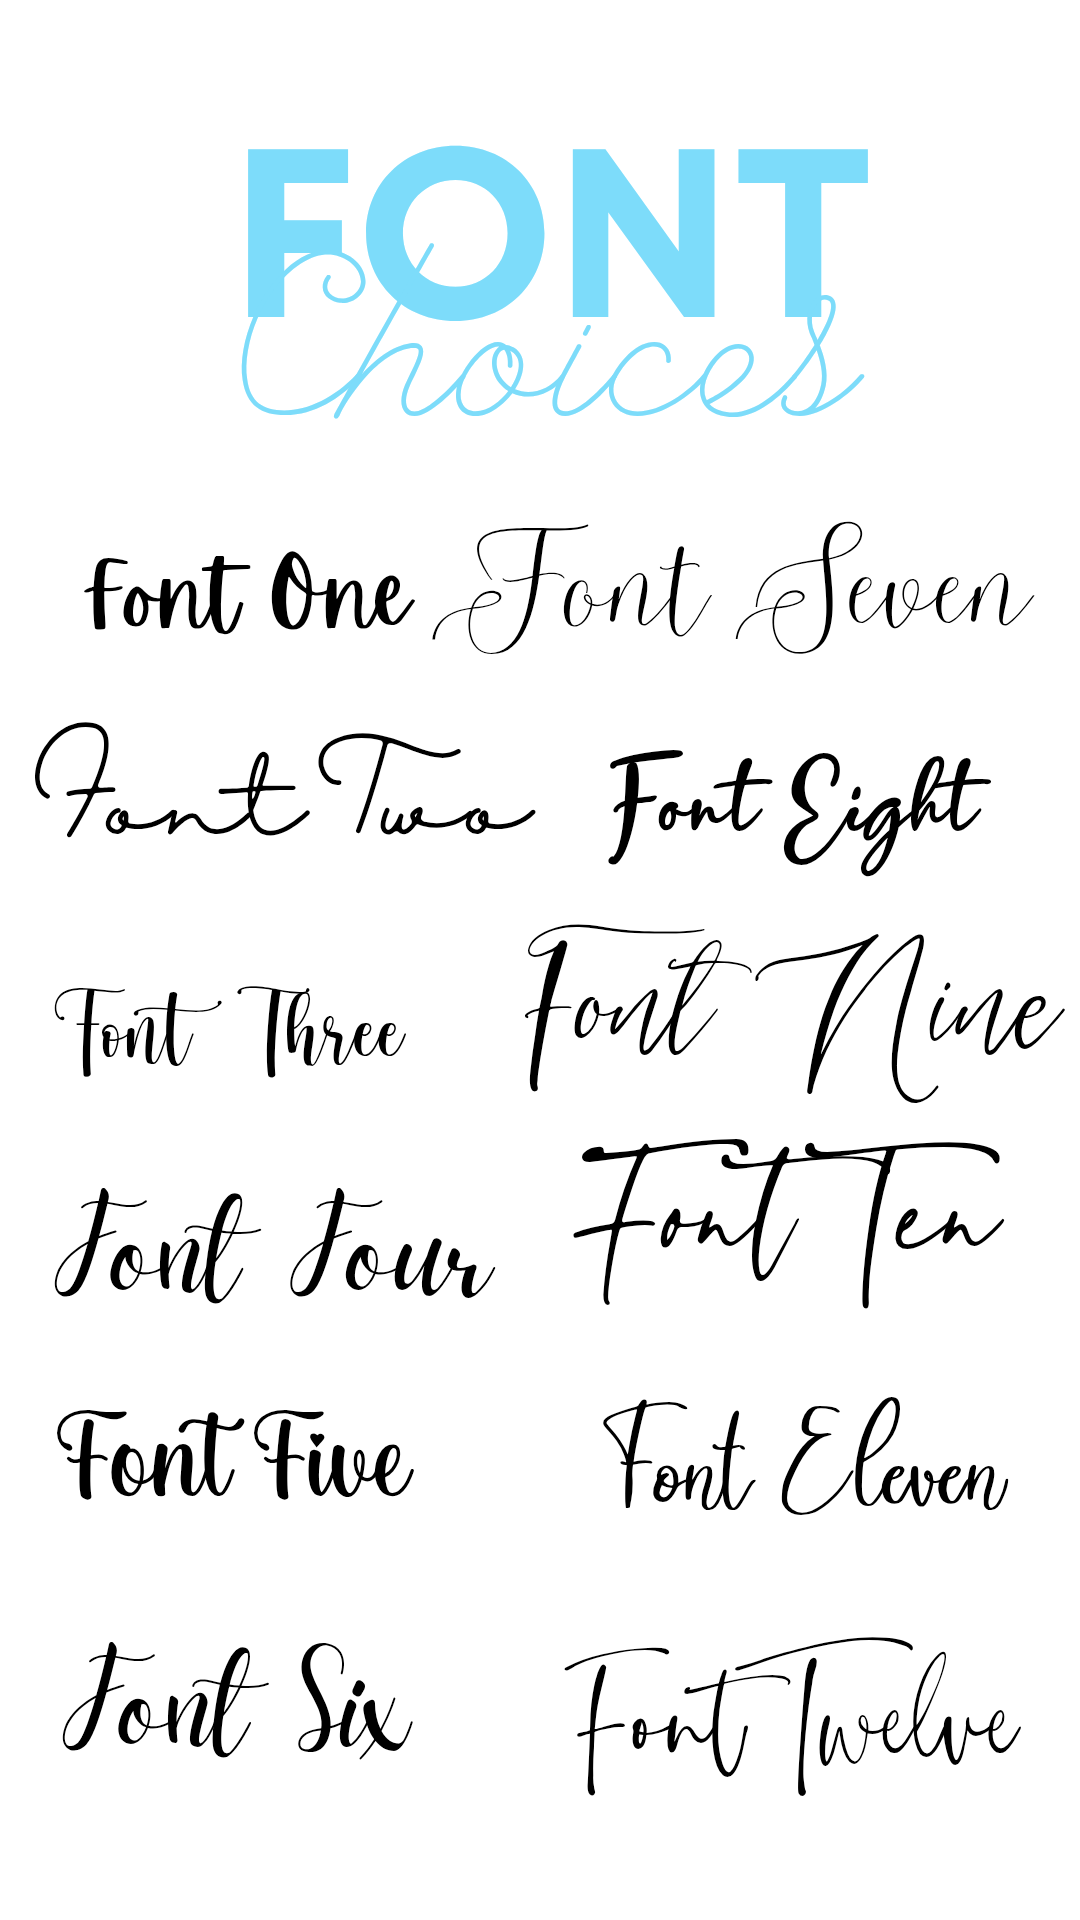 FONT
Choices
Font One
Font Seven
Font Two
Font Eight
Font Three
Font Nine
Font Four
Font Ten
Font Five
Font Eleven
Font Six
Font Twelve